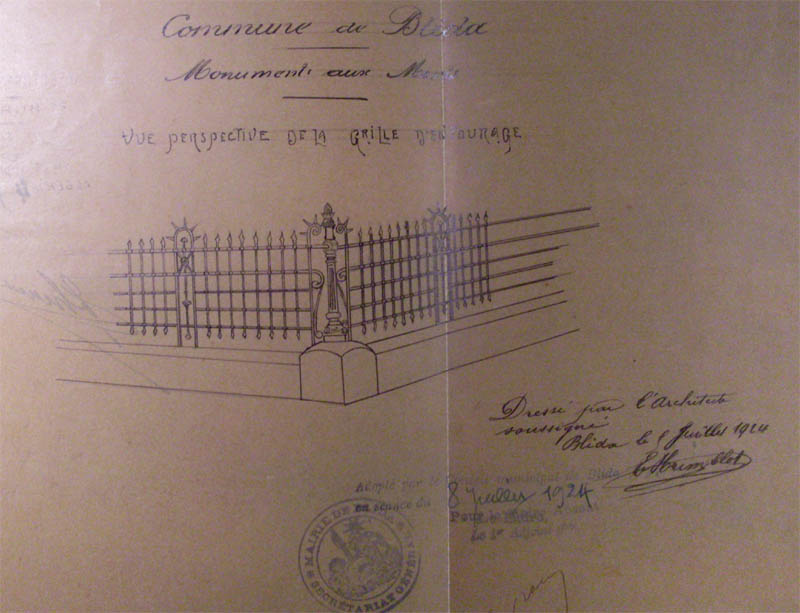 Commune de Blida
Monument aux Morts
VUE PERSPECTIVE DE LA GRILLE D'ENTOURAGE
Dressé par l'Architecte
soussigné
Blida le 5 Juillet 1924
Adopté par le Conseil municipal de Blida
en séance du 8 juillet 1924
Pour le Maire
Le 1er Adjoint
MAIRIE DE BLIDA
SECRÉTARIAT GÉNÉRAL